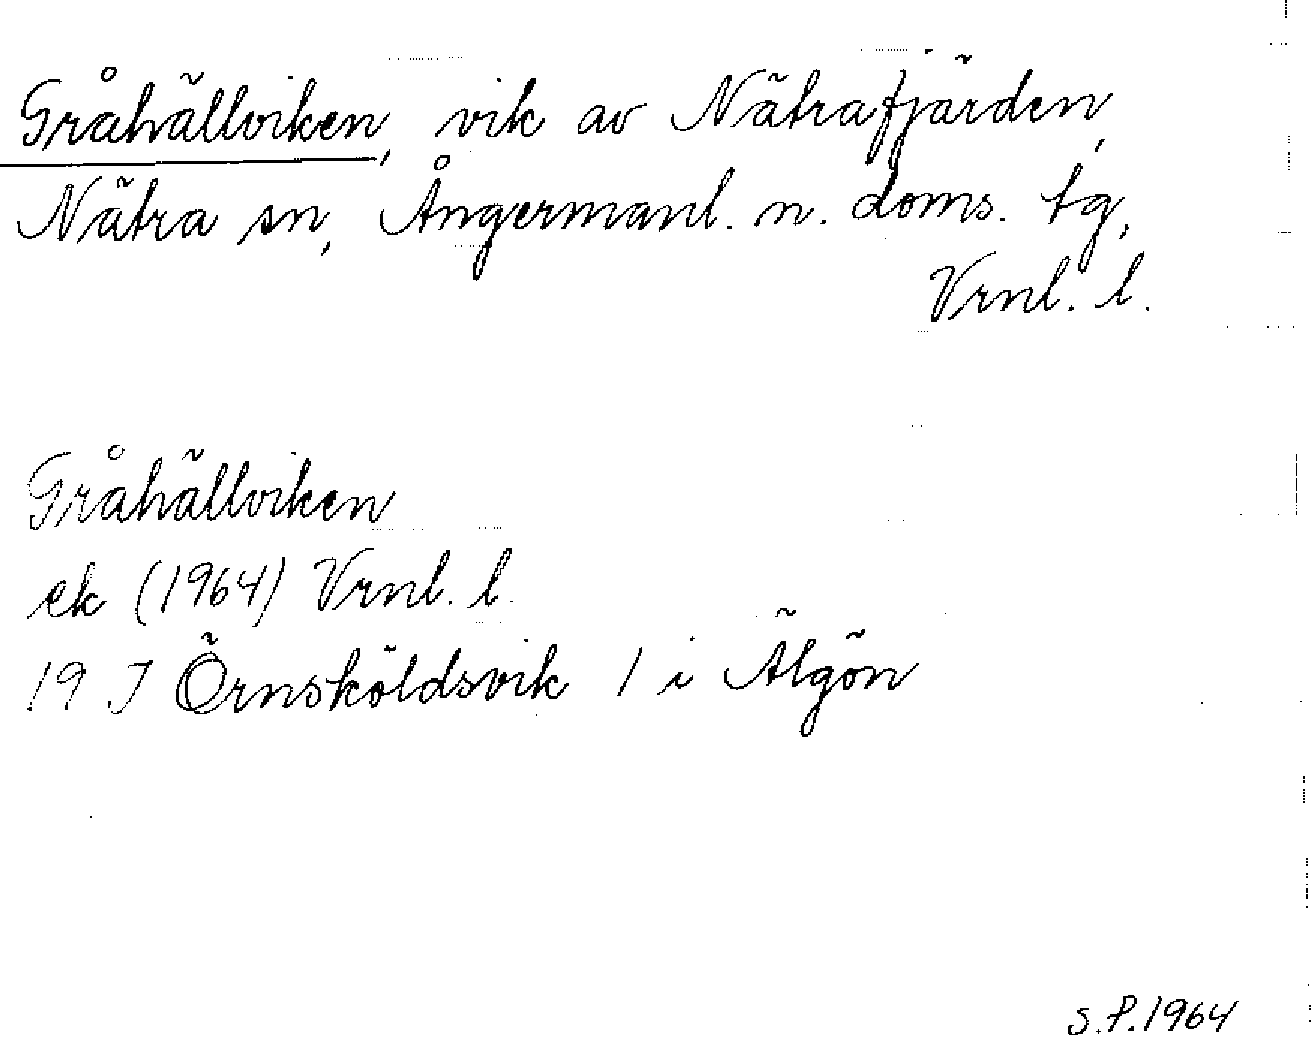 Gråhällviken, vik av Nätrafjärden,
Nätra sn, Ångermanl. n. doms. tg,
Vrnl. l.
Gråhällviken
ek (1964) Vrnl. l.
19 J Örnsköldsvik 1 i Älgön
S.P. 1964